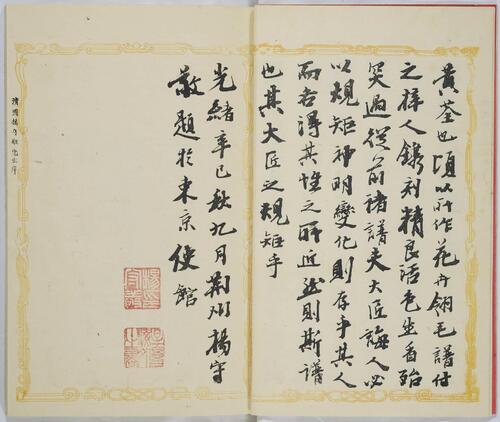 黄荃也頃以所作花卉翎毛譜付
之梓人鐫刻精良活色生香殆
突過從前諸譜夫大匠誨人必
以規矩神明變化則存乎其人
而各得其性之所近然則斯譜
也其大匠之規矩乎
光緒辛巳秋九月荆州楊守
敬題於東京使館